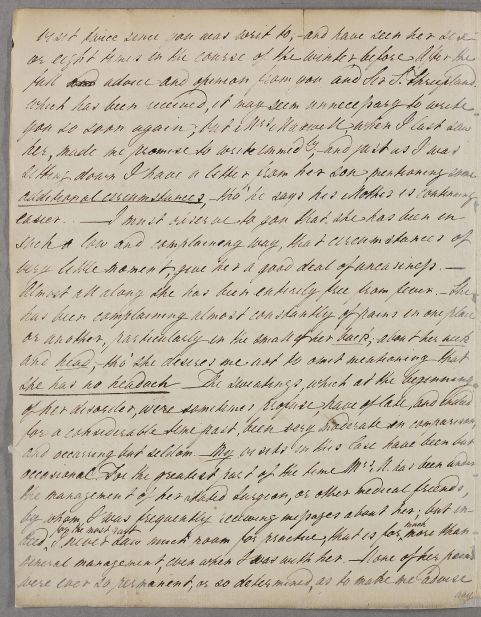 visit twice since you was writ to, - and have seen her six
or eight times in the course of the winter before. After the
full advice and opinion from you and Sir S. Threipland
which has been received, it may seem unnecessary to write
you so soon again; but Mrs Maxwell, when I last saw
her, made me promise to write immedly, - and just as I was
sitting down I have a letter from her son mentioning some
additional circumstances, tho' he says his Mother is continuing
easier. - I must observe to you that she has been in
such a low and complaining way, that circumstances of
very little moment, give her a good deal of uneasiness. -
Almost all along she has been entirely free from fever. - She
has been complaining almost constantly of pains in one place
or another, particularly in the small of her back, about her neck
and head; tho' she desires me not to omit mentioning that
she has no headach. The sweatings, which at the beginning
of her disorder, were sometimes profuse, have of late, and indeed
for a considerable time past, been very moderate in comparison,
and occurring but seldom. - My visits in this case have been but
occasional. For the greatest part of the time Mrs M. has been under
the management of her stated surgeon, or other medical friends,
by whom, I was frequently receiving messages about her; but in-
deed, for the most part I never saw much room for practice, that is for, much more than
general management, even when I was with her. - None of her pains
were ever so permanent, or so determined, as to make me advise
any